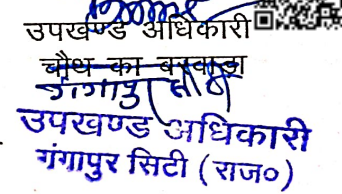 उपखण्ड अधिकारी
चौथ का बरवाड़ा
गंगापुर सिटी
उपखण्ड अधिकारी
गंगापुर सिटी (राज०)